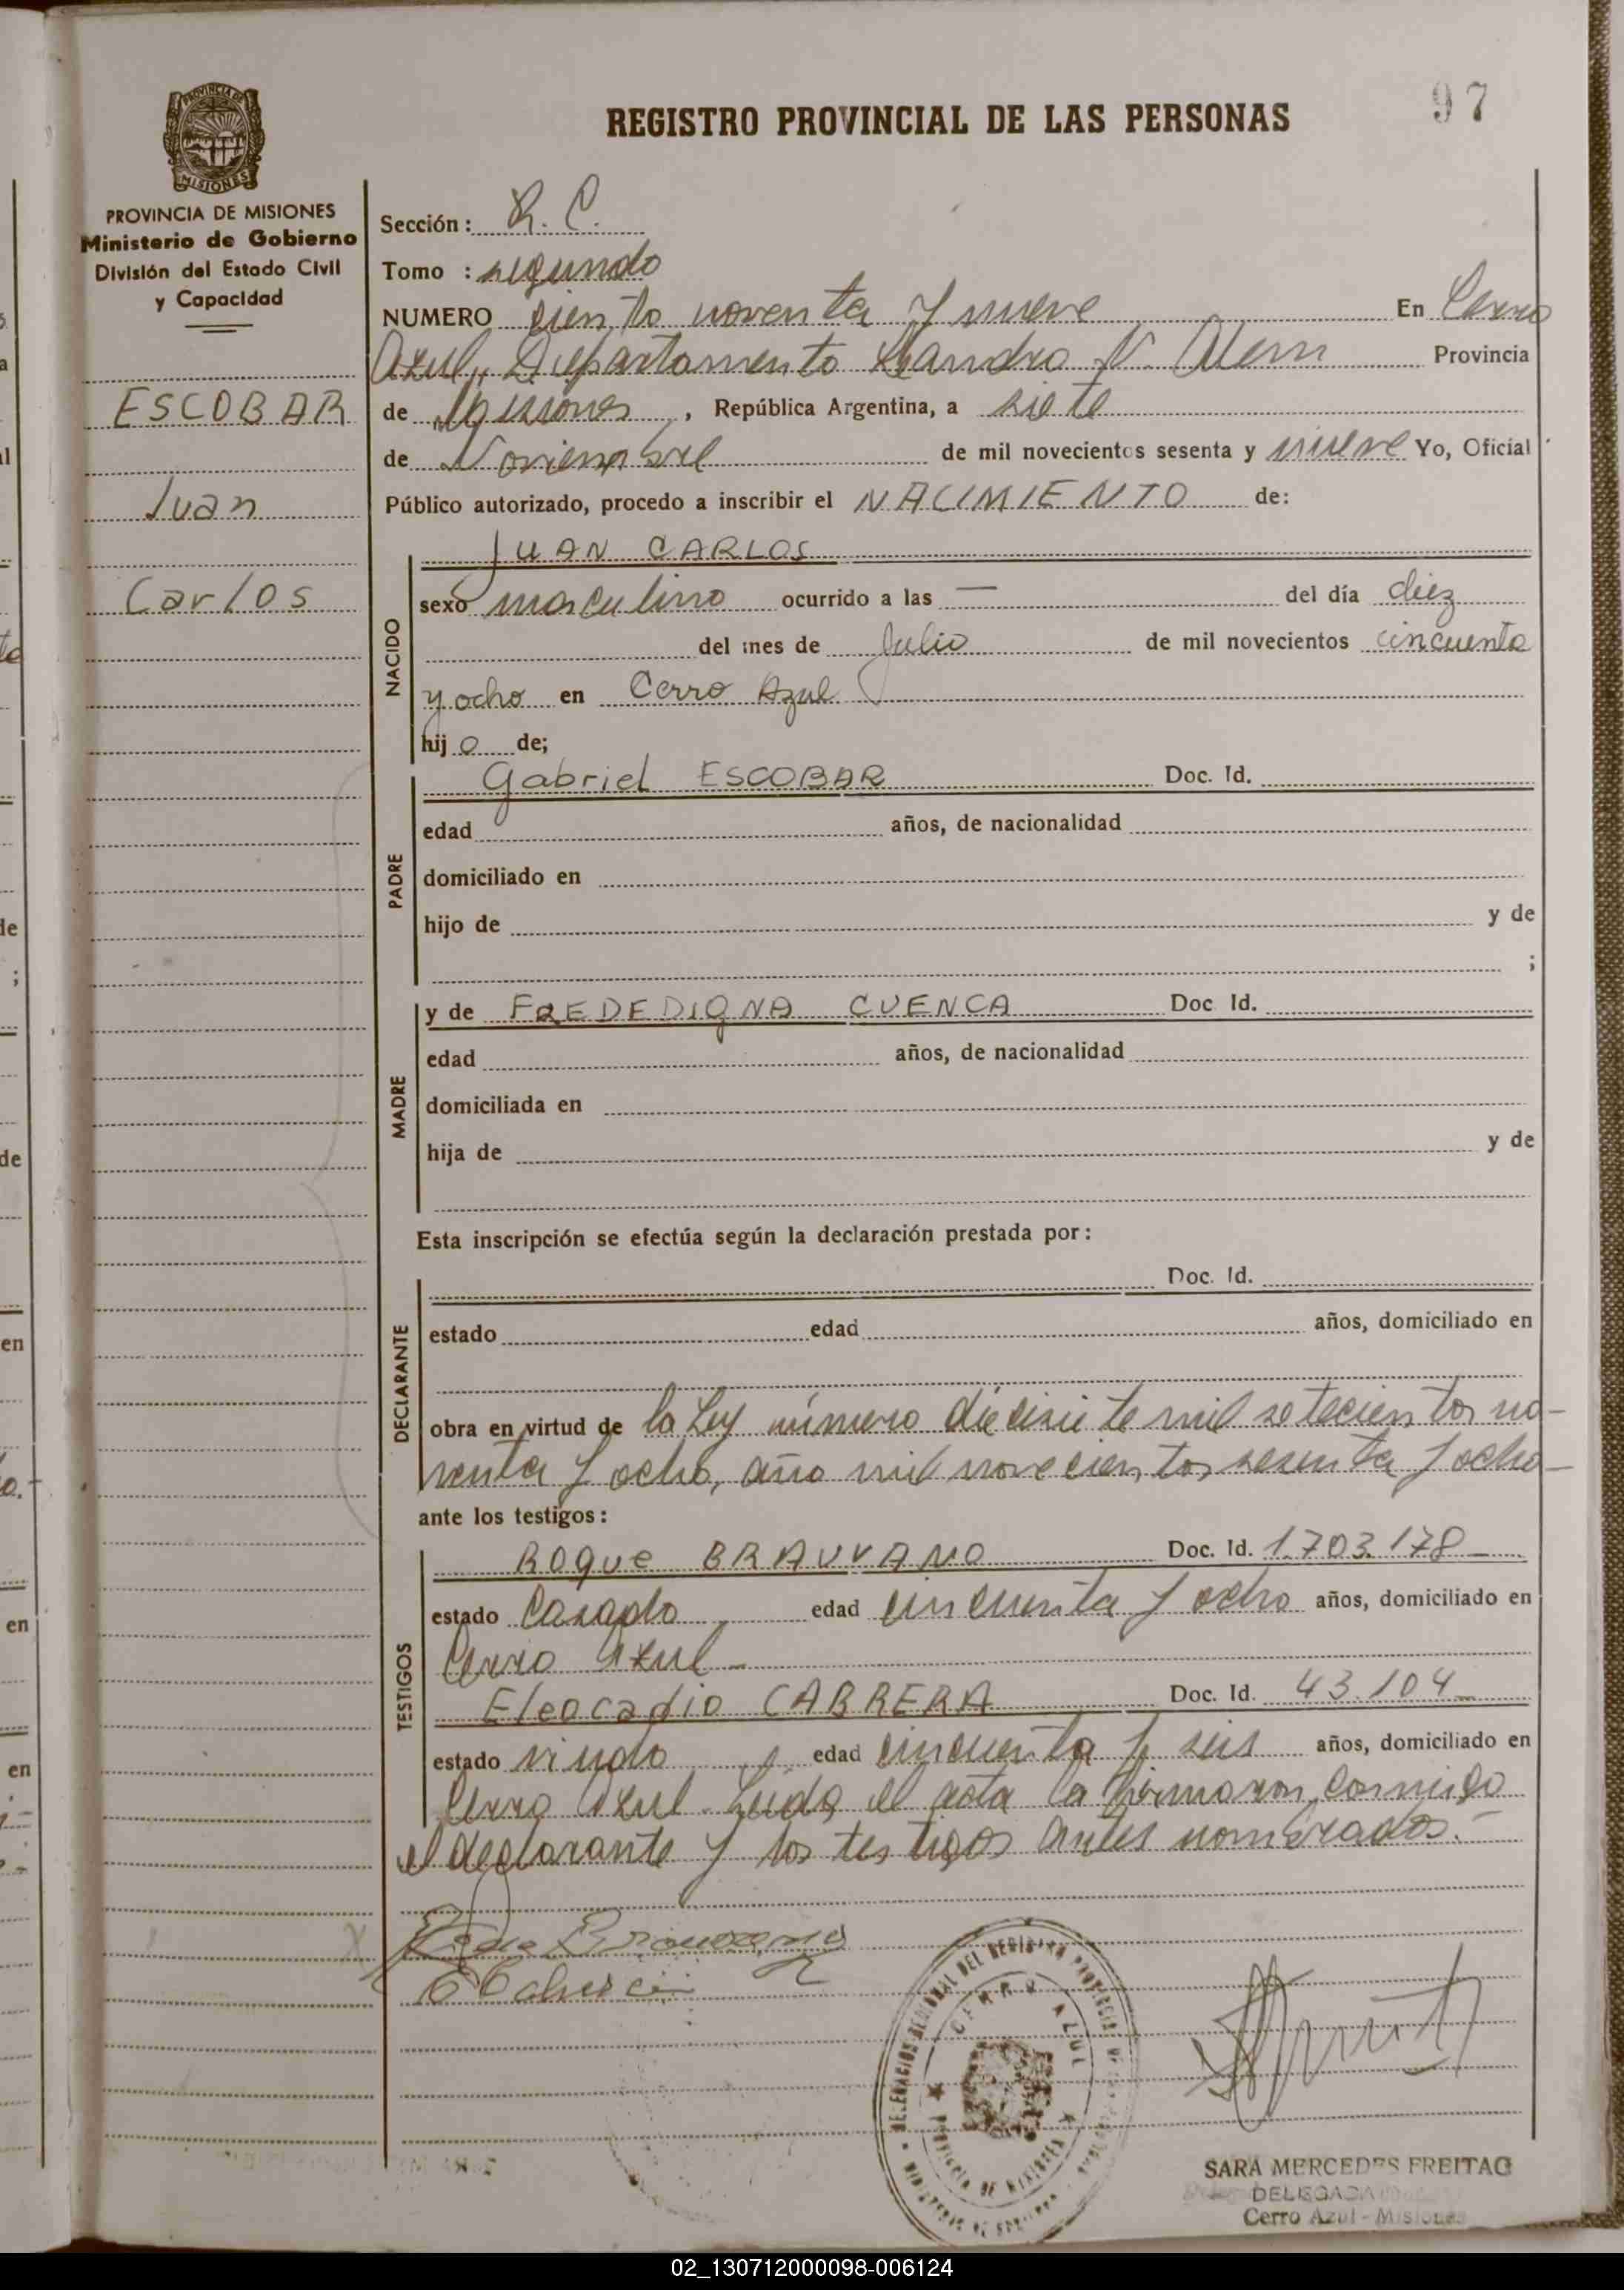 REGISTRO PROVINCIAL DE LAS PERSONAS
97
PROVINCIA DE MISIONES
Ministerio de Gobierno
División del Estado Civil
y Capacidad
ESCOBAR
Juan
Carlos
Sección: R. C.
Tomo : segundo
NUMERO ciento noventa y nueve En Cerro
Azul, Departamento Leandro N. Alem Provincia
de Misiones, República Argentina, a siete
de Noviembre de mil novecientos sesenta y nueve Yo, Oficial
Público autorizado, procedo a inscribir el NACIMIENTO de:
NACIDO
JUAN CARLOS
sexo masculino ocurrido a las — del día diez
del mes de Julio de mil novecientos cincuenta
y ocho en Cerro Azul
hijo de;
PADRE
Gabriel ESCOBAR Doc. Id.
edad años, de nacionalidad
domiciliado en
hijo de y de
;
MADRE
y de FREDEDIGNA CUENCA Doc. Id.
edad años, de nacionalidad
domiciliada en
hija de y de
Esta inscripción se efectúa según la declaración prestada por:
DECLARANTE
Doc. Id.
estado edad años, domiciliado en
obra en virtud de la Ley número diecisiete mil setecientos no-
venta y ocho, año mil novecientos sesenta y ocho—
ante los testigos:
TESTIGOS
Roque BRAUVANO Doc. Id. 1.703.178—
estado Casado edad cincuenta y ocho años, domiciliado en
Cerro Azul—
Eleocadio CABRERA Doc. Id. 43.104—
estado viudo, edad cincuenta y seis años, domiciliado en
Cerro Azul. Leída el acta la firmaron conmigo
el declarante y los testigos antes nombrados.—
CERRO AZUL
PROVINCIA DE MISIONES
SARA MERCEDES FREITAG
DELEGADA
Cerro Azul - Misiones
02_130712000098-006124